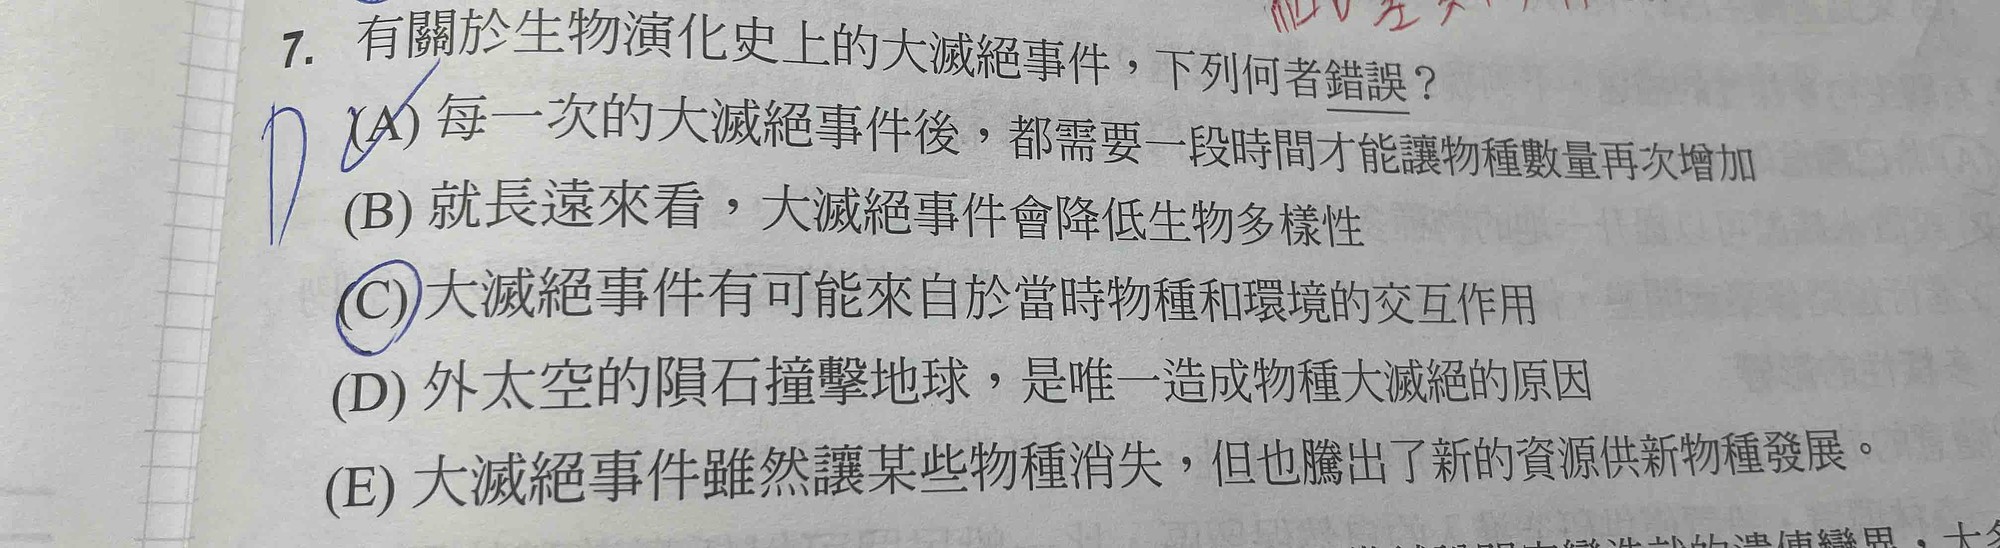 7. 有關於生物演化史上的大滅絕事件，下列何者錯誤？
(A) 每一次的大滅絕事件後，都需要一段時間才能讓物種數量再次增加
(B) 就長遠來看，大滅絕事件會降低生物多樣性
(C) 大滅絕事件有可能來自於當時物種和環境的交互作用
(D) 外太空的隕石撞擊地球，是唯一造成物種大滅絕的原因
(E) 大滅絕事件雖然讓某些物種消失，但也騰出了新的資源供新物種發展。